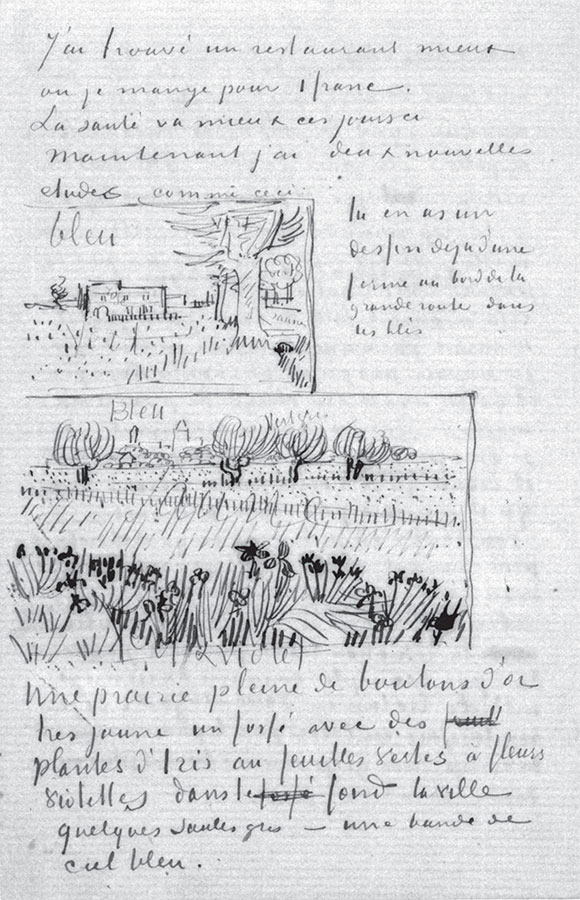 J'ai trouvé un restaurant mieux
ou je mange pour 1 franc.
La santé va mieux ces jours ci
maintenant j'ai deux nouvelles
etudes comme ceci
tu en as un
dessin deja d'une
ferme au bord de la
grande route dans
les blés
bleu
vert
jaune
Bleu
vert gris
violet
une prairie pleine de boutons d'or
tres jaune un fossé avec des
plantes d'Iris au feuilles vertes à fleurs
violettes dans le fossé fond la ville
quelques saules gris – une bande de
ciel bleu.